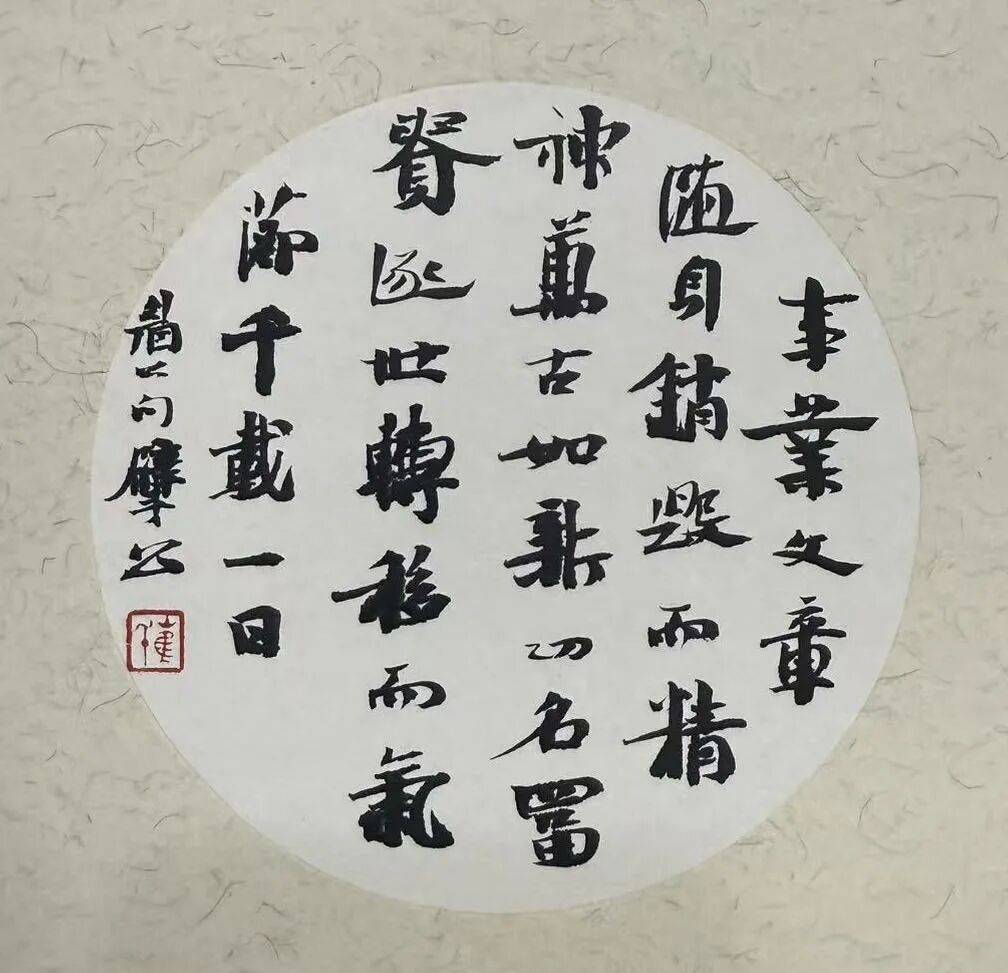 事業文章
隨身銷毀而精
神萬古如新功名富
貴逐世轉移而氣
節千載一日